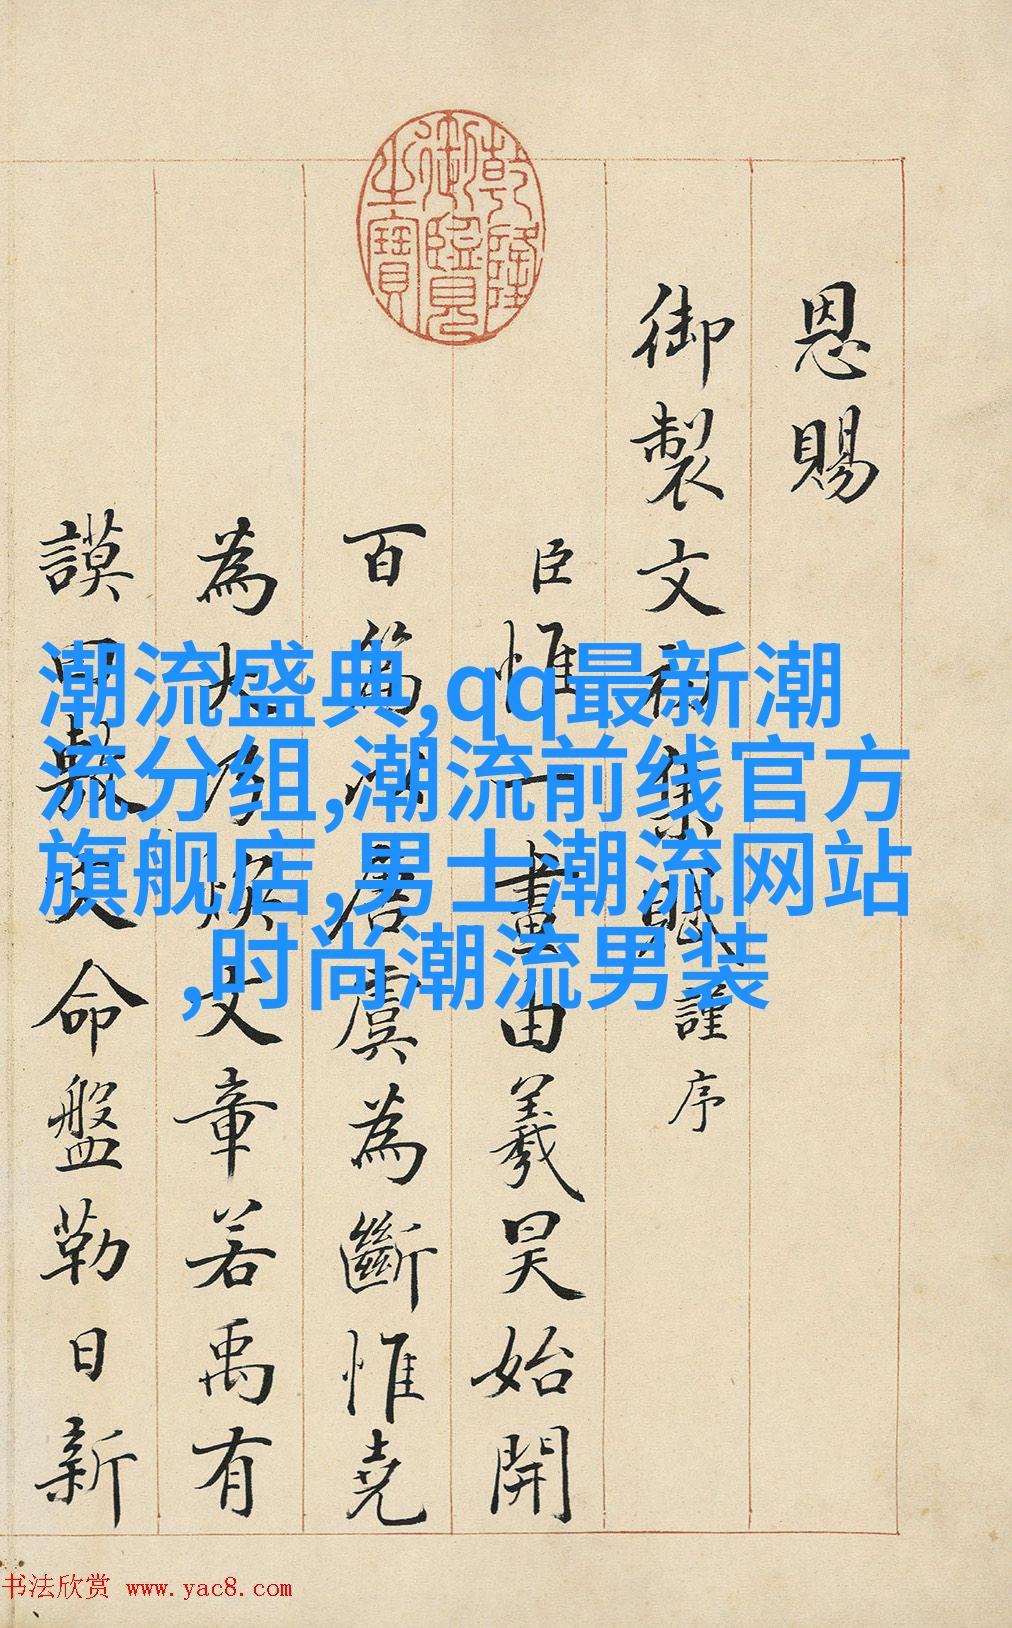 乾隆御覽之寶
恩賜
御製文初集賦謹序
臣惟一畫由羲昊始開
百篇唐虞為斷惟堯
為大乃煥文章若禹有
謨敷文命盤勒日新
潮流盛典,qq最新潮
流分组,潮流前线官方
旗舰店,男士潮流网站
,时尚潮流男装
书法欣赏 www.yac8.com